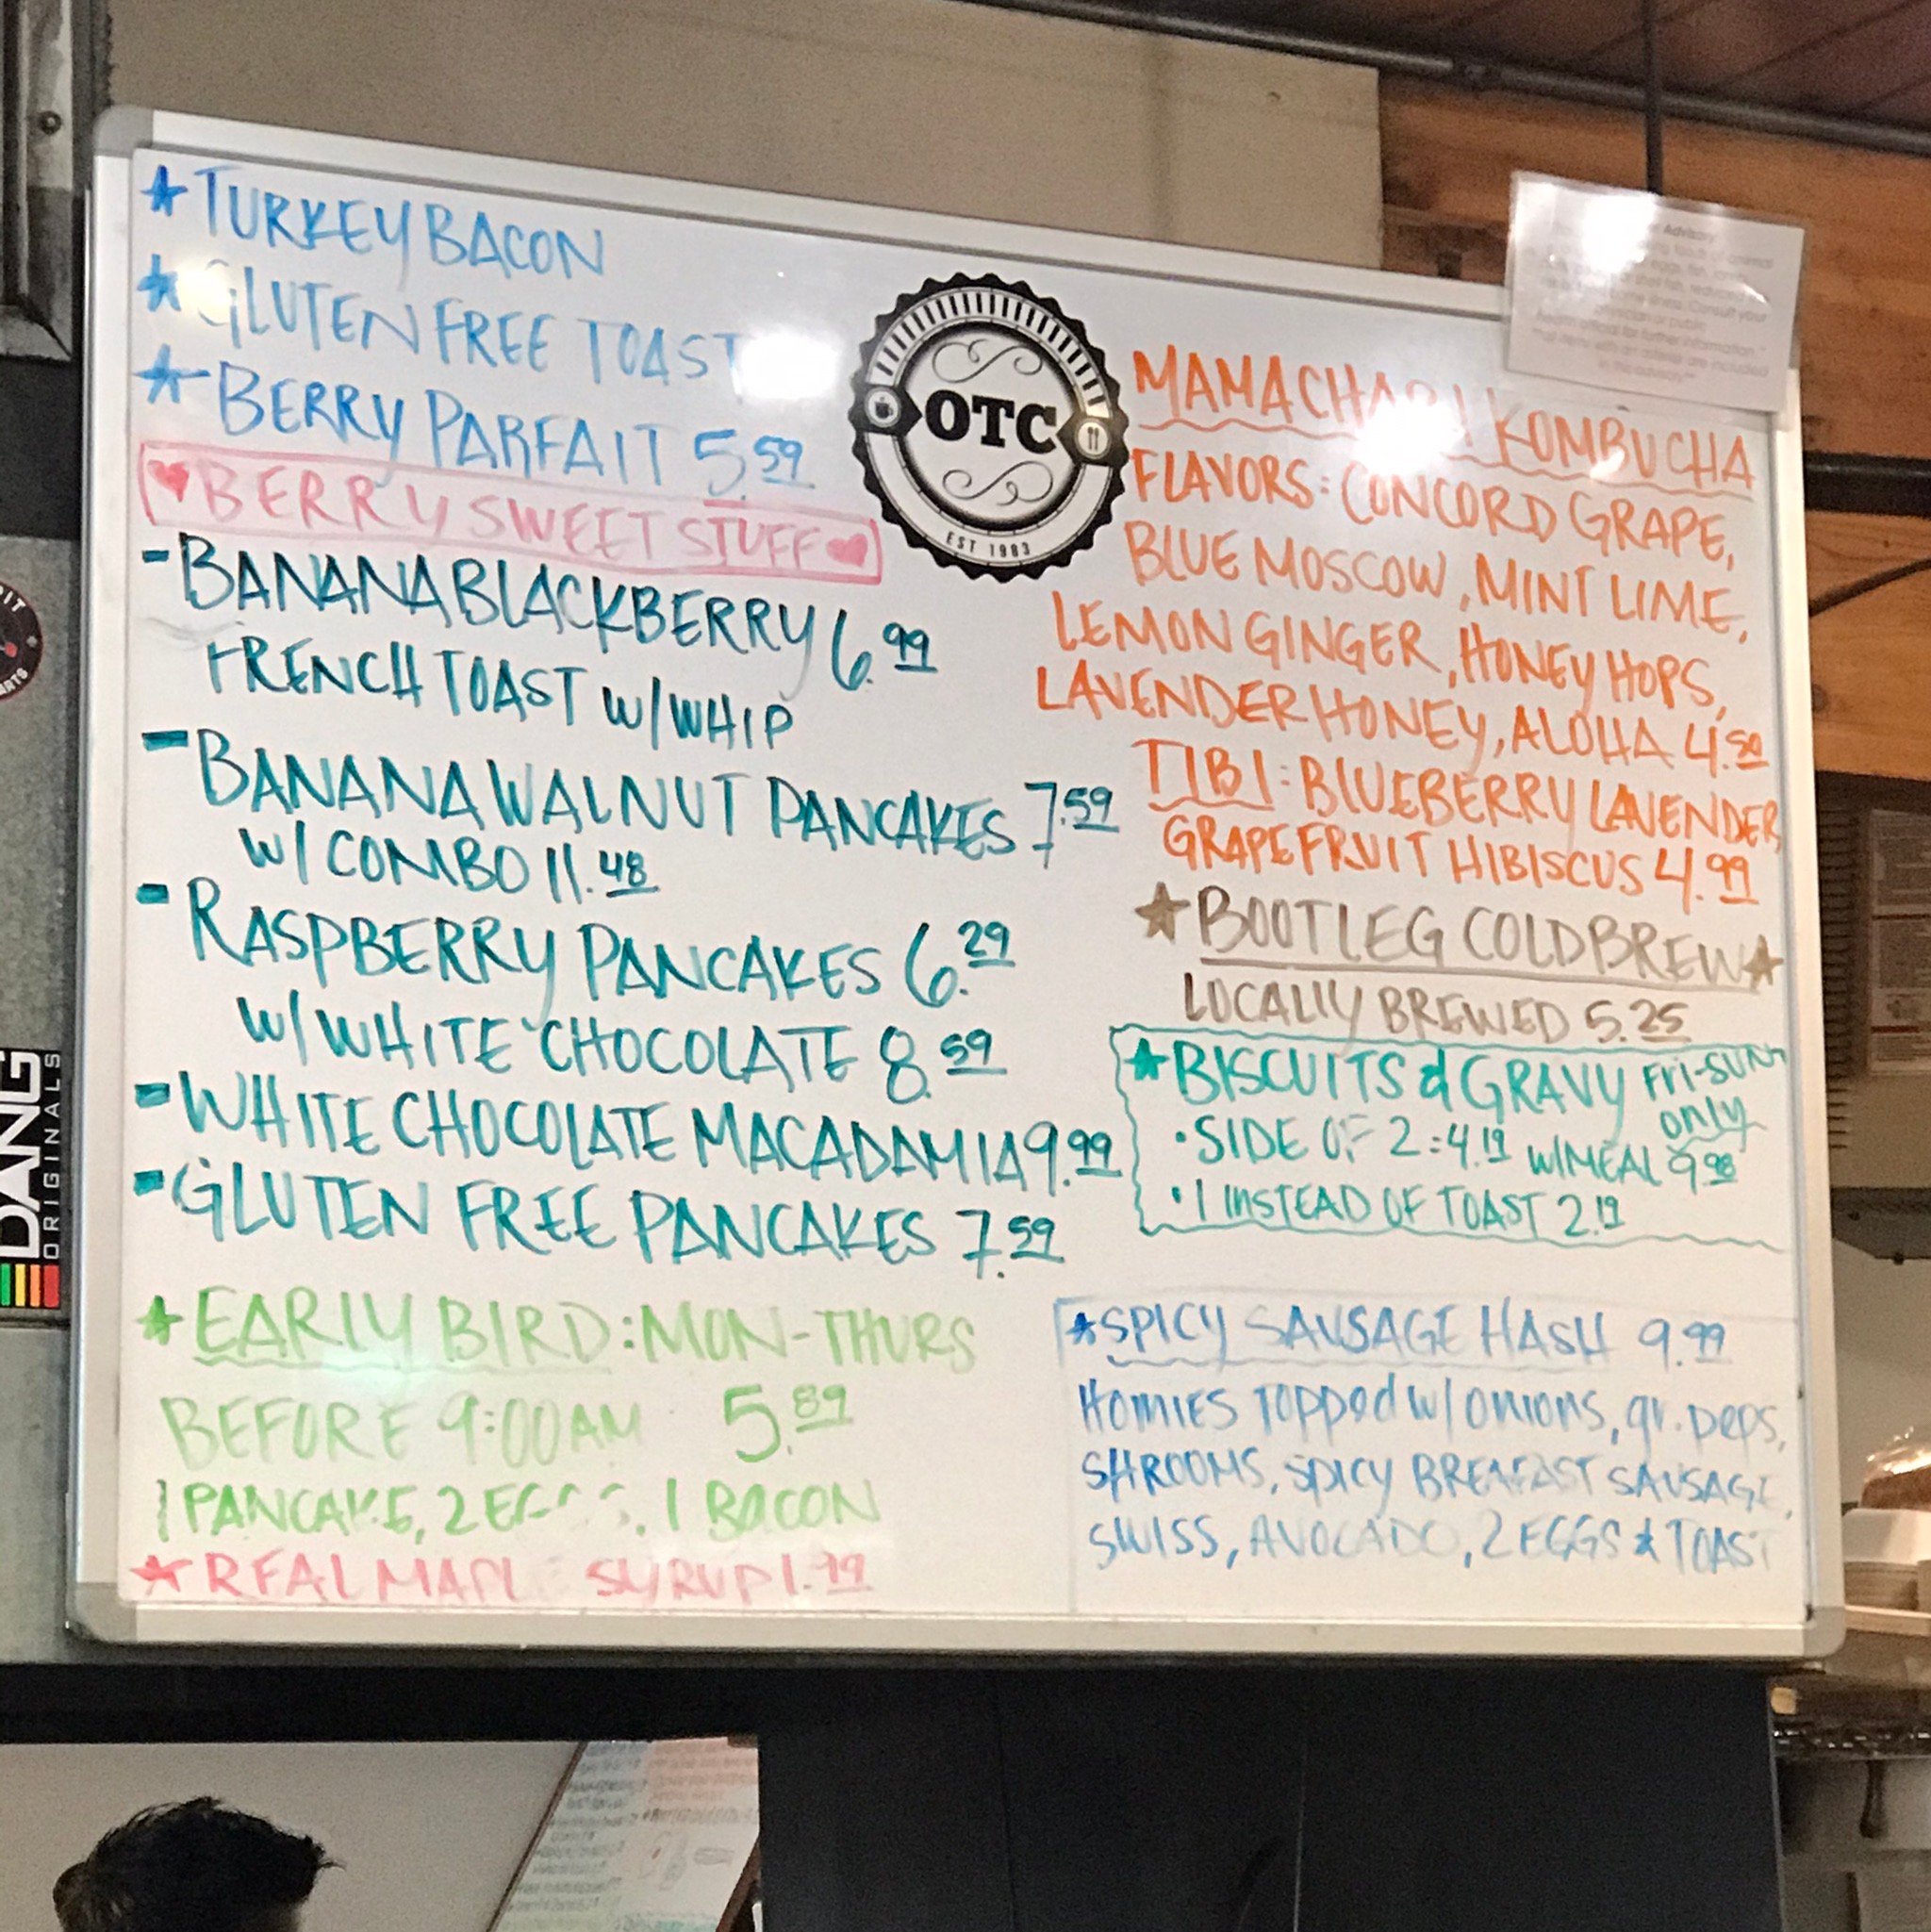 ★ TURKEY BACON
★ GLUTEN FREE TOAST
★ BERRY PARFAIT 5.59
♥ BERRY SWEET STUFF ♥
- BANANA BLACKBERRY 6.99
FRENCH TOAST W/WHIP
- BANANA WALNUT PANCAKES 7.59
W/ COMBO 11.48
- RASPBERRY PANCAKES 6.29
W/ WHITE CHOCOLATE 8.59
- WHITE CHOCOLATE MACADAMIA 9.99
- GLUTEN FREE PANCAKES 7.59
★ EARLY BIRD: MON-THURS
BEFORE 9:00AM 5.89
1 PANCAKE, 2 EGGS, 1 BACON
★ REAL MAPLE SYRUP 1.99
OTC
EST 1983
MAMACHARI KOMBUCHA
FLAVORS: CONCORD GRAPE,
BLUE MOSCOW, MINT LIME,
LEMON GINGER, HONEY HOPS,
LAVENDER HONEY, ALOHA 4.50
TIBI: BLUEBERRY LAVENDER,
GRAPEFRUIT HIBISCUS 4.99
★ BOOTLEG COLD BREW ★
LOCALLY BREWED 5.25
★ BISCUITS & GRAVY FRI-SUN
only
• SIDE OF 2: 4.19 W/MEAL 9.98
• 1 INSTEAD OF TOAST 2.19
★ SPICY SAUSAGE HASH 9.99
HOMIES TOPPED W/ ONIONS, gr. peps,
SHROOMS, SPICY BREAFAST SAUSAGE,
SWISS, AVOCADO, 2 EGGS & TOAST
Advisory
Consult your
for further information.
are included
in this advisory
DANG
ORIGINALS